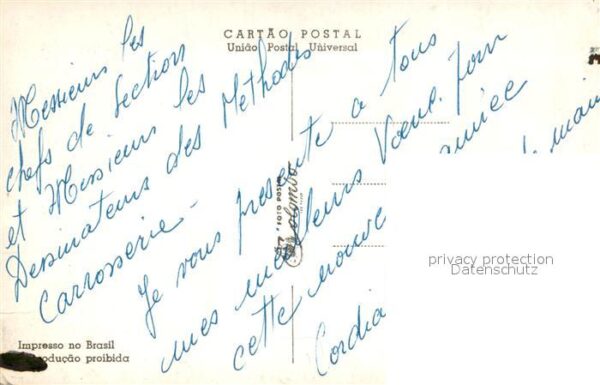 CARTÃO POSTAL
União Postal Universal
Messieurs les
chefs de Section
et Messieurs les
Dessinateurs des Méthodes
Carrosserie -
Je vous présente à tous
mes meilleurs Vœux pour
cette nouve année
Cordia
"FOTO POSTAL
Colombo
Impresso no Brasil
rodução proibida
privacy protection
Datenschutz